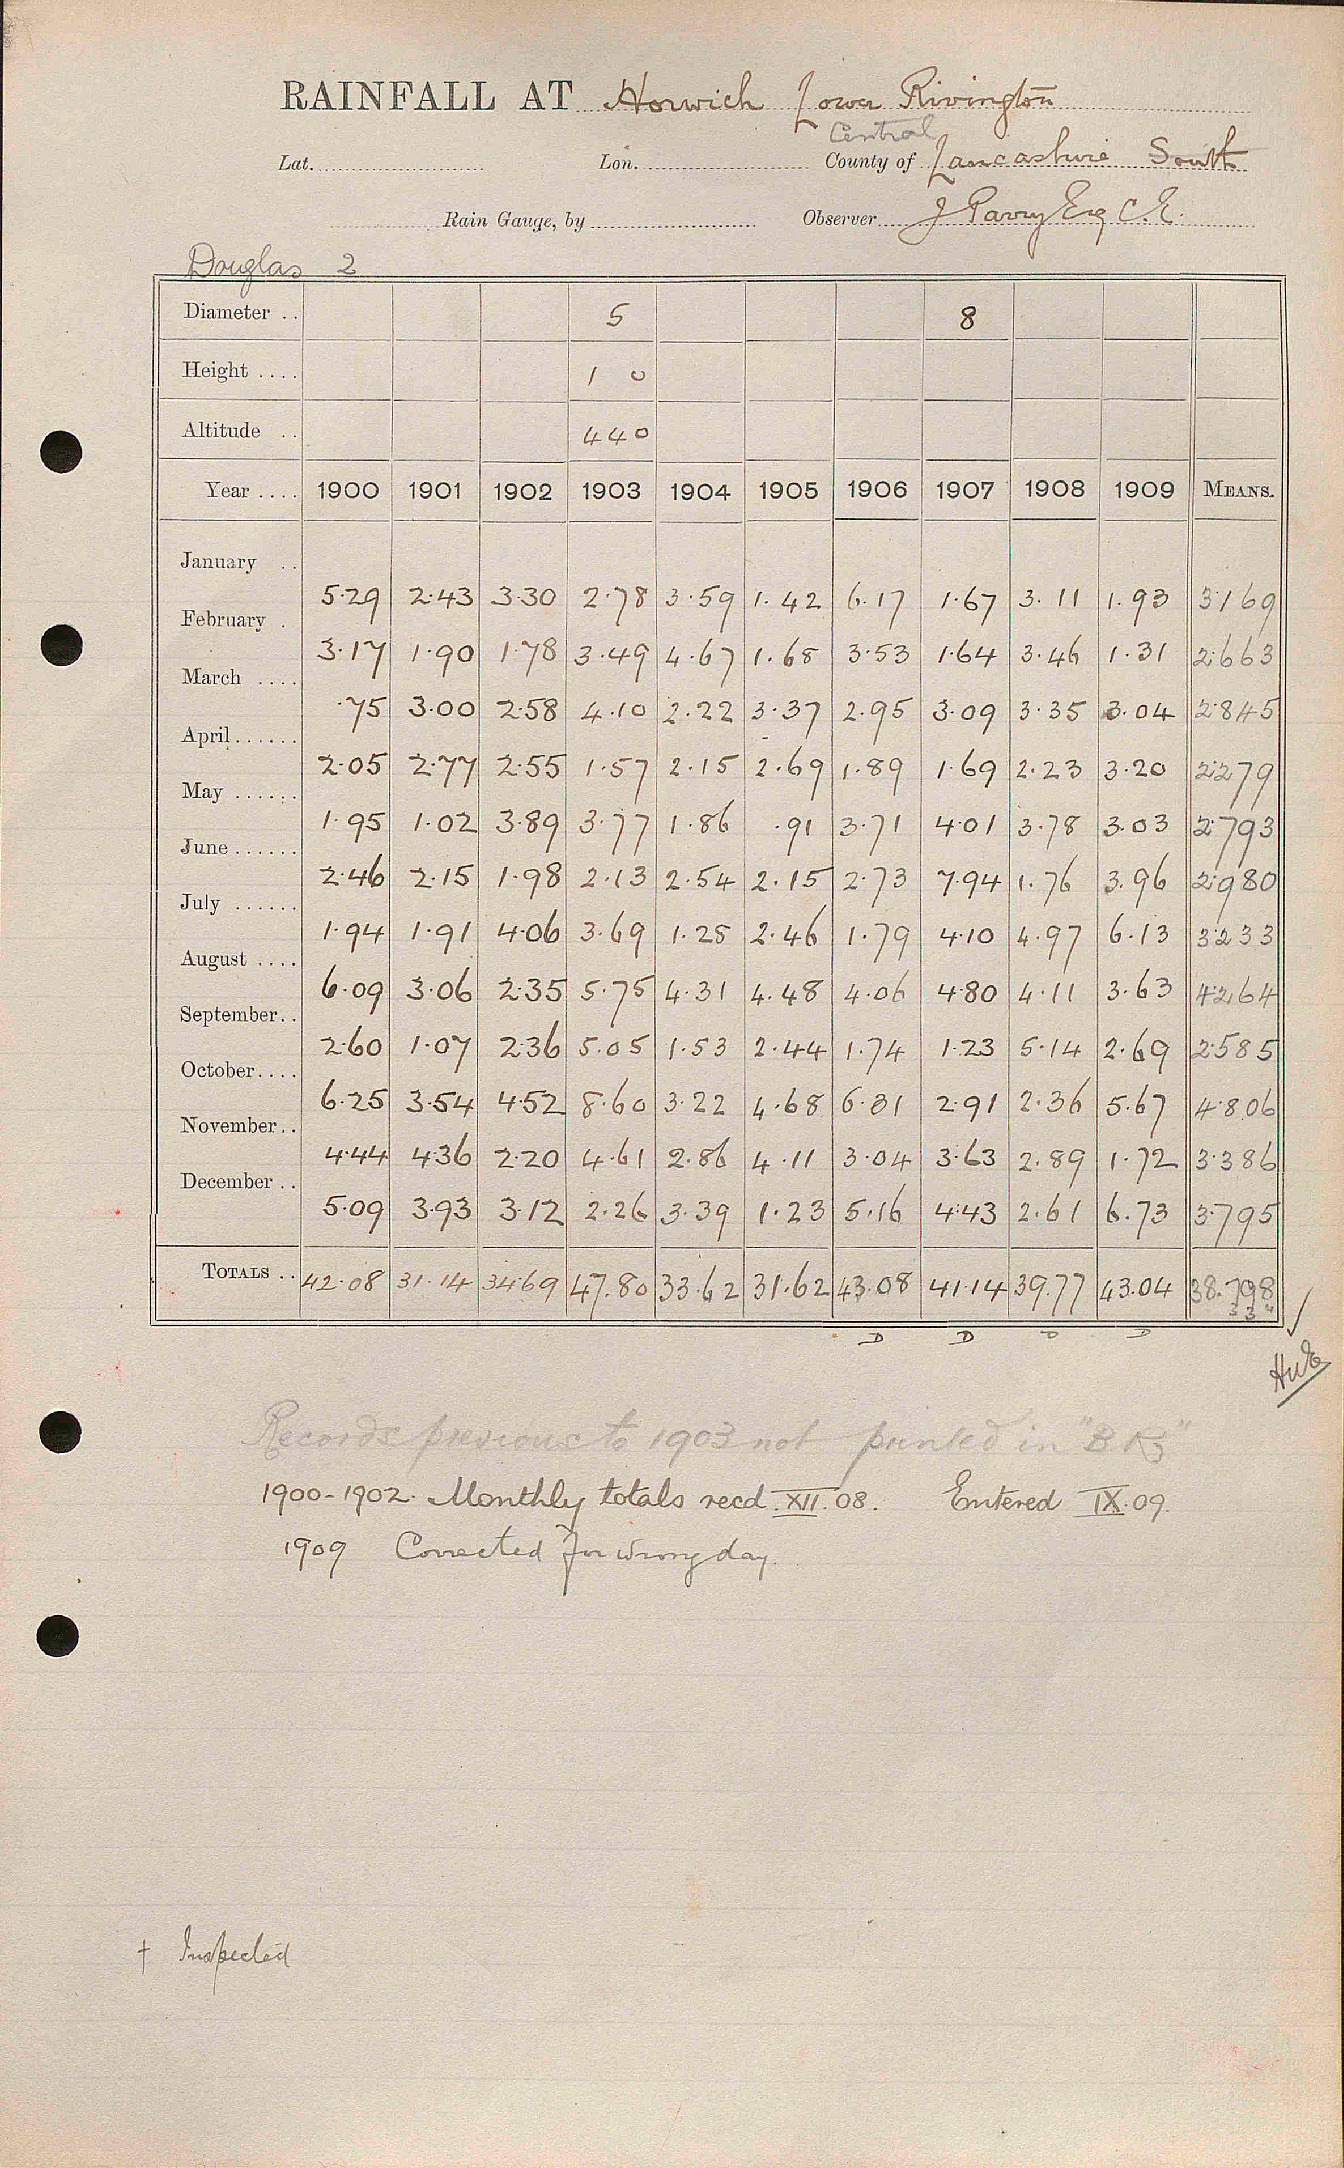 RAINFALL AT Horwich Lower Rivington
Central
Lat. Lon. County of Lancashire South
Rain Gauge, by Observer J Parry Esq C.E.
Douglas 2
Diameter .. 5 8
Height .... 1 0
Altitude .. 440
Year .... 1900 1901 1902 1903 1904 1905 1906 1907 1908 1909 MEANS.
January .. 5.29 2.43 3.30 2.78 3.59 1.42 6.17 1.67 3.11 1.93 3.169
February . 3.17 1.90 1.78 3.49 4.67 1.68 3.53 1.64 3.46 1.31 2.663
March .... .75 3.00 2.58 4.10 2.22 3.37 2.95 3.09 3.35 3.04 2.845
April...... 2.05 2.77 2.55 1.57 2.15 2.69 1.89 1.69 2.23 3.20 2.279
May ...... 1.95 1.02 3.89 3.77 1.86 .91 3.71 4.01 3.78 3.03 2.793
June ...... 2.46 2.15 1.98 2.13 2.54 2.15 2.73 7.94 1.76 3.96 2.980
July ...... 1.94 1.91 4.06 3.69 1.28 2.46 1.79 4.10 4.97 6.13 3.233
August .... 6.09 3.06 2.35 5.75 4.31 4.48 4.06 4.80 4.11 3.63 4.264
September.. 2.60 1.07 2.36 5.05 1.53 2.44 1.74 1.23 5.14 2.69 2.585
October.... 6.25 3.54 4.52 8.60 3.22 4.68 6.31 2.91 2.36 5.67 4.806
November.. 4.44 4.36 2.20 4.61 2.86 4.11 3.04 3.63 2.89 1.72 3.386
December .. 5.09 3.93 3.12 2.26 3.39 1.23 5.16 4.43 2.61 6.73 3.795
TOTALS .. 42.08 31.14 34.69 47.80 33.62 31.62 43.08 41.14 39.77 43.04 38.798
D D D D
Records previous to 1903 not printed in "B.R"
1900-1902. Monthly totals recd. XII.08. Entered IX.09.
1909 Corrected for wrong day.
† Inspected